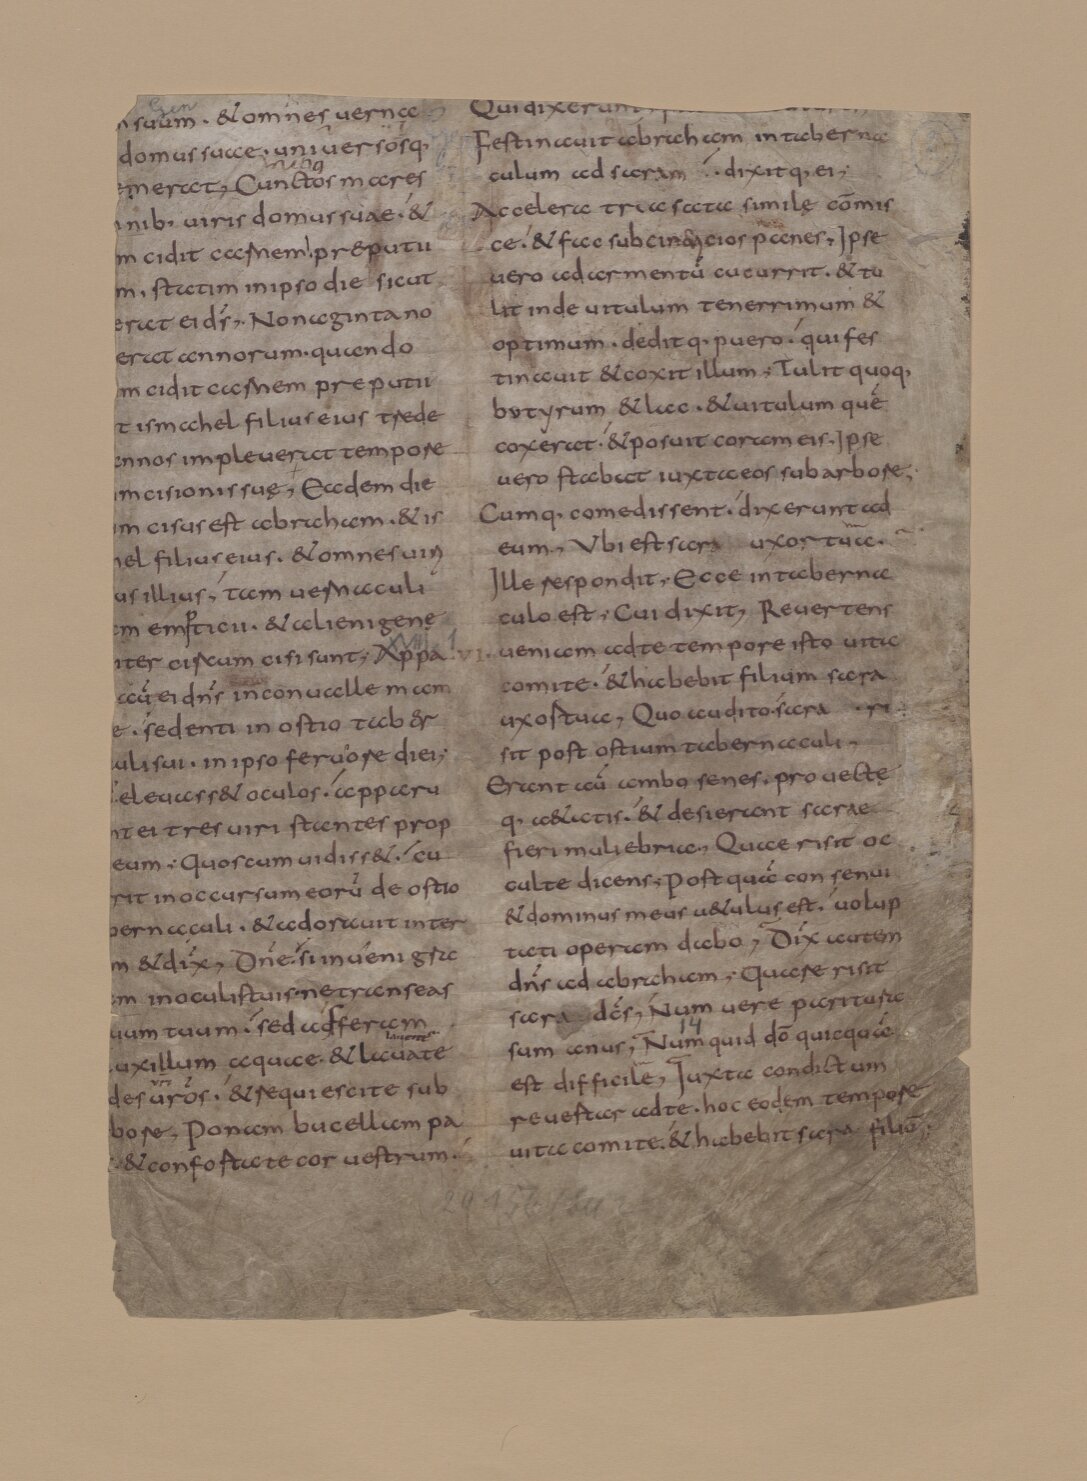 suum. & omnes vernac
domus suae. universosq;
emerat, Cunctos mares
nib; viris domus suae. &
m cidit carnem preputii
m. statim in ipso die sicut
erat ei ds, Nonaginta no
erat annorum. quando
m cidit carnem preputii
t ismahel filius eius trede
nnos impleverat tempore
mcisionis suę, Eadem die
m cisus est abraham. & is
hel filius eius. & omnes viri
us illius, tam vernaculi
m empticii. & alienigenę
iter circumcisi sunt, Appa
aū ei dns in convalle mam
e. sedenti in ostio tab er
uli sui. in ipso fervore diei;
elevass& oculos. apparu
nt ei tres viri stantes prop
eum; Quos cum vidiss&. cu
rrit in occursum eorū de ostio
bernaculi. & adoravit in ter
m & dix, Dne. si inveni gra
m in oculis tuis. ne transeas
vum tuum. sed adferam
uxillum aquae. & lavate
des vros. & requiescite sub
bore, Ponam bucellam pa
& confortate cor vestrum.
Qui dixerunt
Festinavit abraham in taberna
culum ad saram. dixitq; ei;
Accelera tria sata similę cōmis
ce. & fac subcinericios panes, Ipse
vero ad armentū cucurrit. & tu
lit inde vitulum tenerrimum &
optimum. deditq; puero. qui fes
tinavit & coxit illum, Tulit quoq;
butyrum & lac. & vitulum quē
coxerat. & posuit coram eis. Ipse
vero stabat iuxta eos sub arbore;
Cumq; comedissent. dixerunt ad
eum, Ubi est sara uxor tua.
Ille respondit, Ecce in taberna
culo est, Cui dixit, Revertens
VI veniam ad te tempore isto vita
comite. & habebit filium sara
uxor tua, Quo audito. sara ri
sit post ostium tabernaculi,
Erant aū ambo senes. provectę
q; aetatis. & desierant sarae
fieri muliebria, Quae risit oc
culte dicens, Postquā consenui
& dominus meus vetulus est. volup
tati operam dabo, Dix autem
dns ad abraham, Quare risit
sara dcs, Num vere paritura
sum anus, Numquid dō quicquā
est difficile, Iuxta condictum
revertar ad te. hoc eodem tempore
vita comite. & habebit sara filiū.